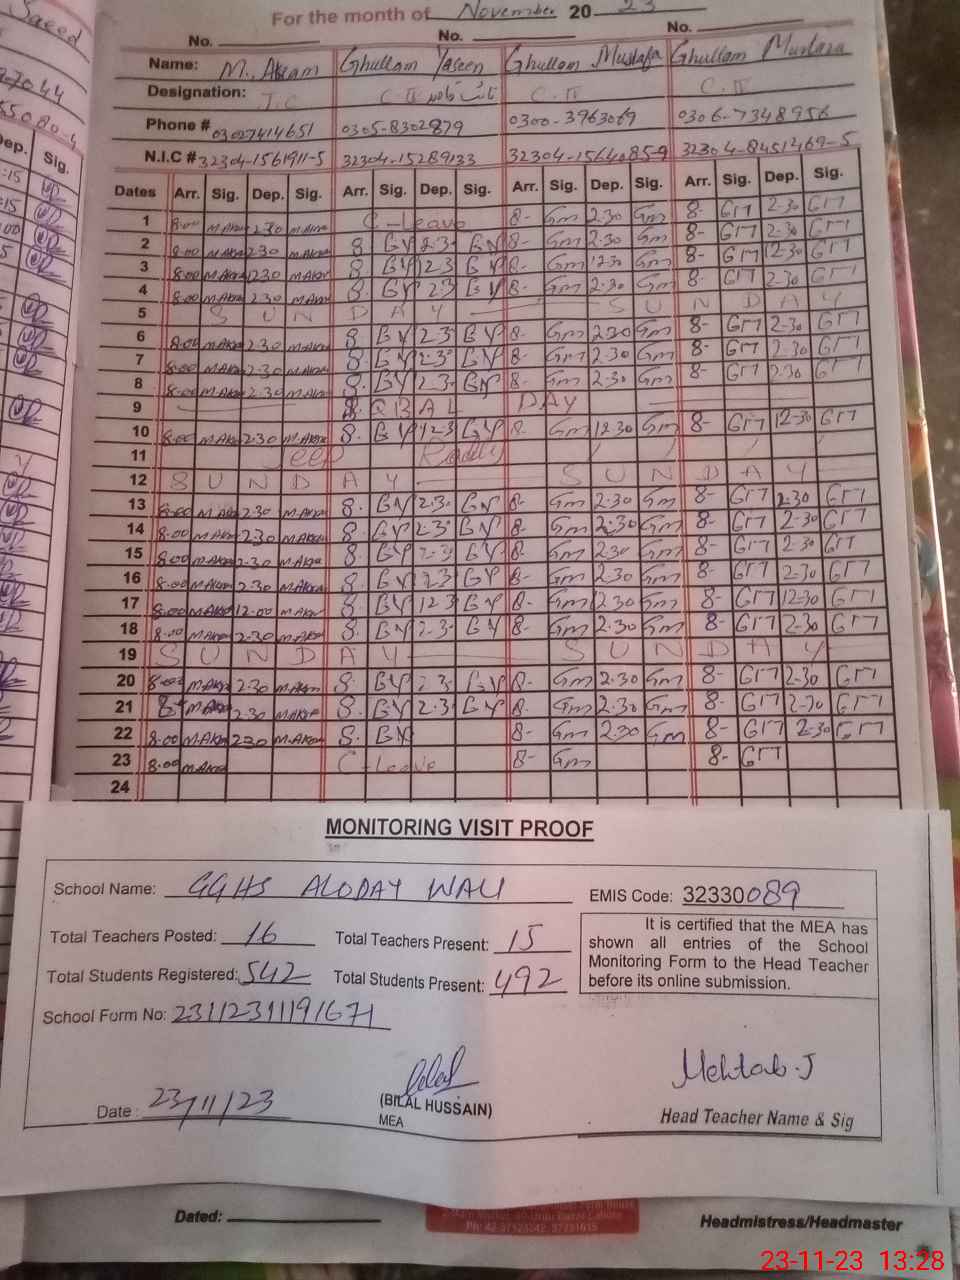 For the month of November 20 23
No. No. No.
Name: M. Akram Ghullam Yaseen Ghullam Mustafa Ghullam Murtaza
Designation: C.IV C.IV C.IV
Phone # 03027414651 0305-8302879 0300-3963069 0306-7348956
N.I.C # 32304-1561911-5 32304-15289133 32304-1564085-9 32304-8451469-5
Dates Arr. Sig. Dep. Sig. Arr. Sig. Dep. Sig. Arr. Sig. Dep. Sig. Arr. Sig. Dep. Sig.
1 8.00 M.Akram 2.30 M.Akram C-leave 8- Gm 2.30 Gm 8- GM 2-30 GM
2 8.00 M.Akram 2.30 M.Akram 8. GY 2.3 GY 8- Gm 2.30 Gm 8- GM 2-30 GM
3 8.00 M.Akram 12.30 M.Akram 8. GY 12.3 GY 8- Gm 12.30 Gm 8- GM 12-30 GM
4 8.00 M.Akram 2.30 M.Akram 8. GY 2.3 GY 8- Gm 2.30 Gm 8- GM 2-30 GM
5 SUNDAY SUNDAY
6 8.00 M.Akram 2.30 M.Akram 8. GY 2.3 GY 8- Gm 2.30 Gm 8- GM 2-30 GM
7 8.00 M.Akram 2.30 M.Akram 8. GY 2.3 GY 8- Gm 2.30 Gm 8- GM 2-30 GM
8 8.00 M.Akram 2.30 M.Akram 8. GY 2.3 GY 8- Gm 2.30 Gm 8- GM 2-30 GM
9 IQBAL DAY
10 8.00 M.Akram 2.30 M.Akram 8. GY 12.3 GY 8- Gm 12.30 Gm 8- GM 12-30 GM
11 Jeep Raelly
12 SUNDAY SUNDAY
13 8.00 M.Akram 2.30 M.Akram 8. GY 2.3 GY 8- Gm 2.30 Gm 8- GM 2-30 GM
14 8.00 M.Akram 2.30 M.Akram 8. GY 2.3 GY 8- Gm 2.30 Gm 8- GM 2-30 GM
15 8.00 M.Akram 2.30 M.Akram 8. GY 2.3 GY 8- Gm 2.30 Gm 8- GM 2-30 GM
16 8.00 M.Akram 2.30 M.Akram 8. GY 2.3 GY 8- Gm 2.30 Gm 8- GM 2-30 GM
17 8.00 M.Akram 12.00 M.Akram 8. GY 12.3 GY 8- Gm 12.30 Gm 8- GM 12-30 GM
18 8.00 M.Akram 2.30 M.Akram 8. GY 2.3 GY 8- Gm 2.30 Gm 8- GM 2-30 GM
19 SUNDAY SUNDAY
20 8.00 M.Akram 2.30 M.Akram 8. GY 2.3 GY 8- Gm 2.30 Gm 8- GM 2-30 GM
21 8 M.Akram 2.30 M.Akram 8. GY 2.3 GY 8- Gm 2.30 Gm 8- GM 2-30 GM
22 8.00 M.Akram 2.30 M.Akram 8. GY 8- Gm 2.30 Gm 8- GM 2-30 GM
23 8.00 M.Akram C-leave 8- Gm 8- GM
24
MONITORING VISIT PROOF
School Name: GGHS ALODAY WALI EMIS Code: 32330089
Total Teachers Posted: 16 Total Teachers Present: 15
Total Students Registered: 542 Total Students Present: 492
It is certified that the MEA has
shown all entries of the School
Monitoring Form to the Head Teacher
before its online submission.
School Form No: 23112311191671
Mehtab.J
Date: 23/11/23
(BILAL HUSSAIN)
MEA
Head Teacher Name & Sig
Dated:
Headmistress/Headmaster
23-11-23 13:28